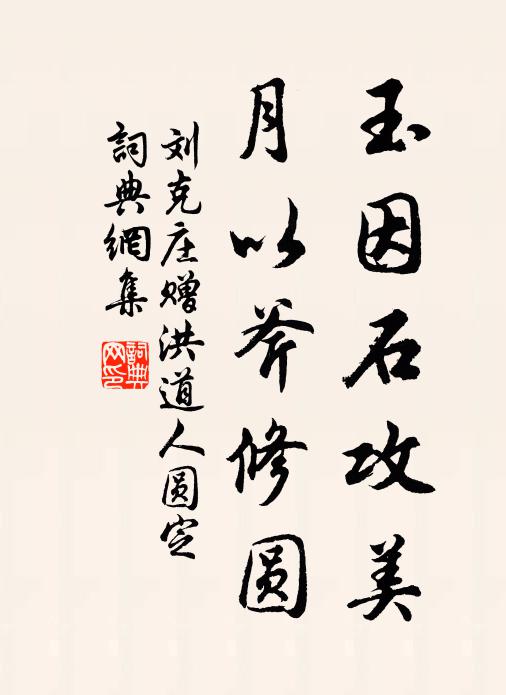 玉因石攻美
月以斧修圆
刘克庄赠洪道人圆定
詞典網集
詞典
网印